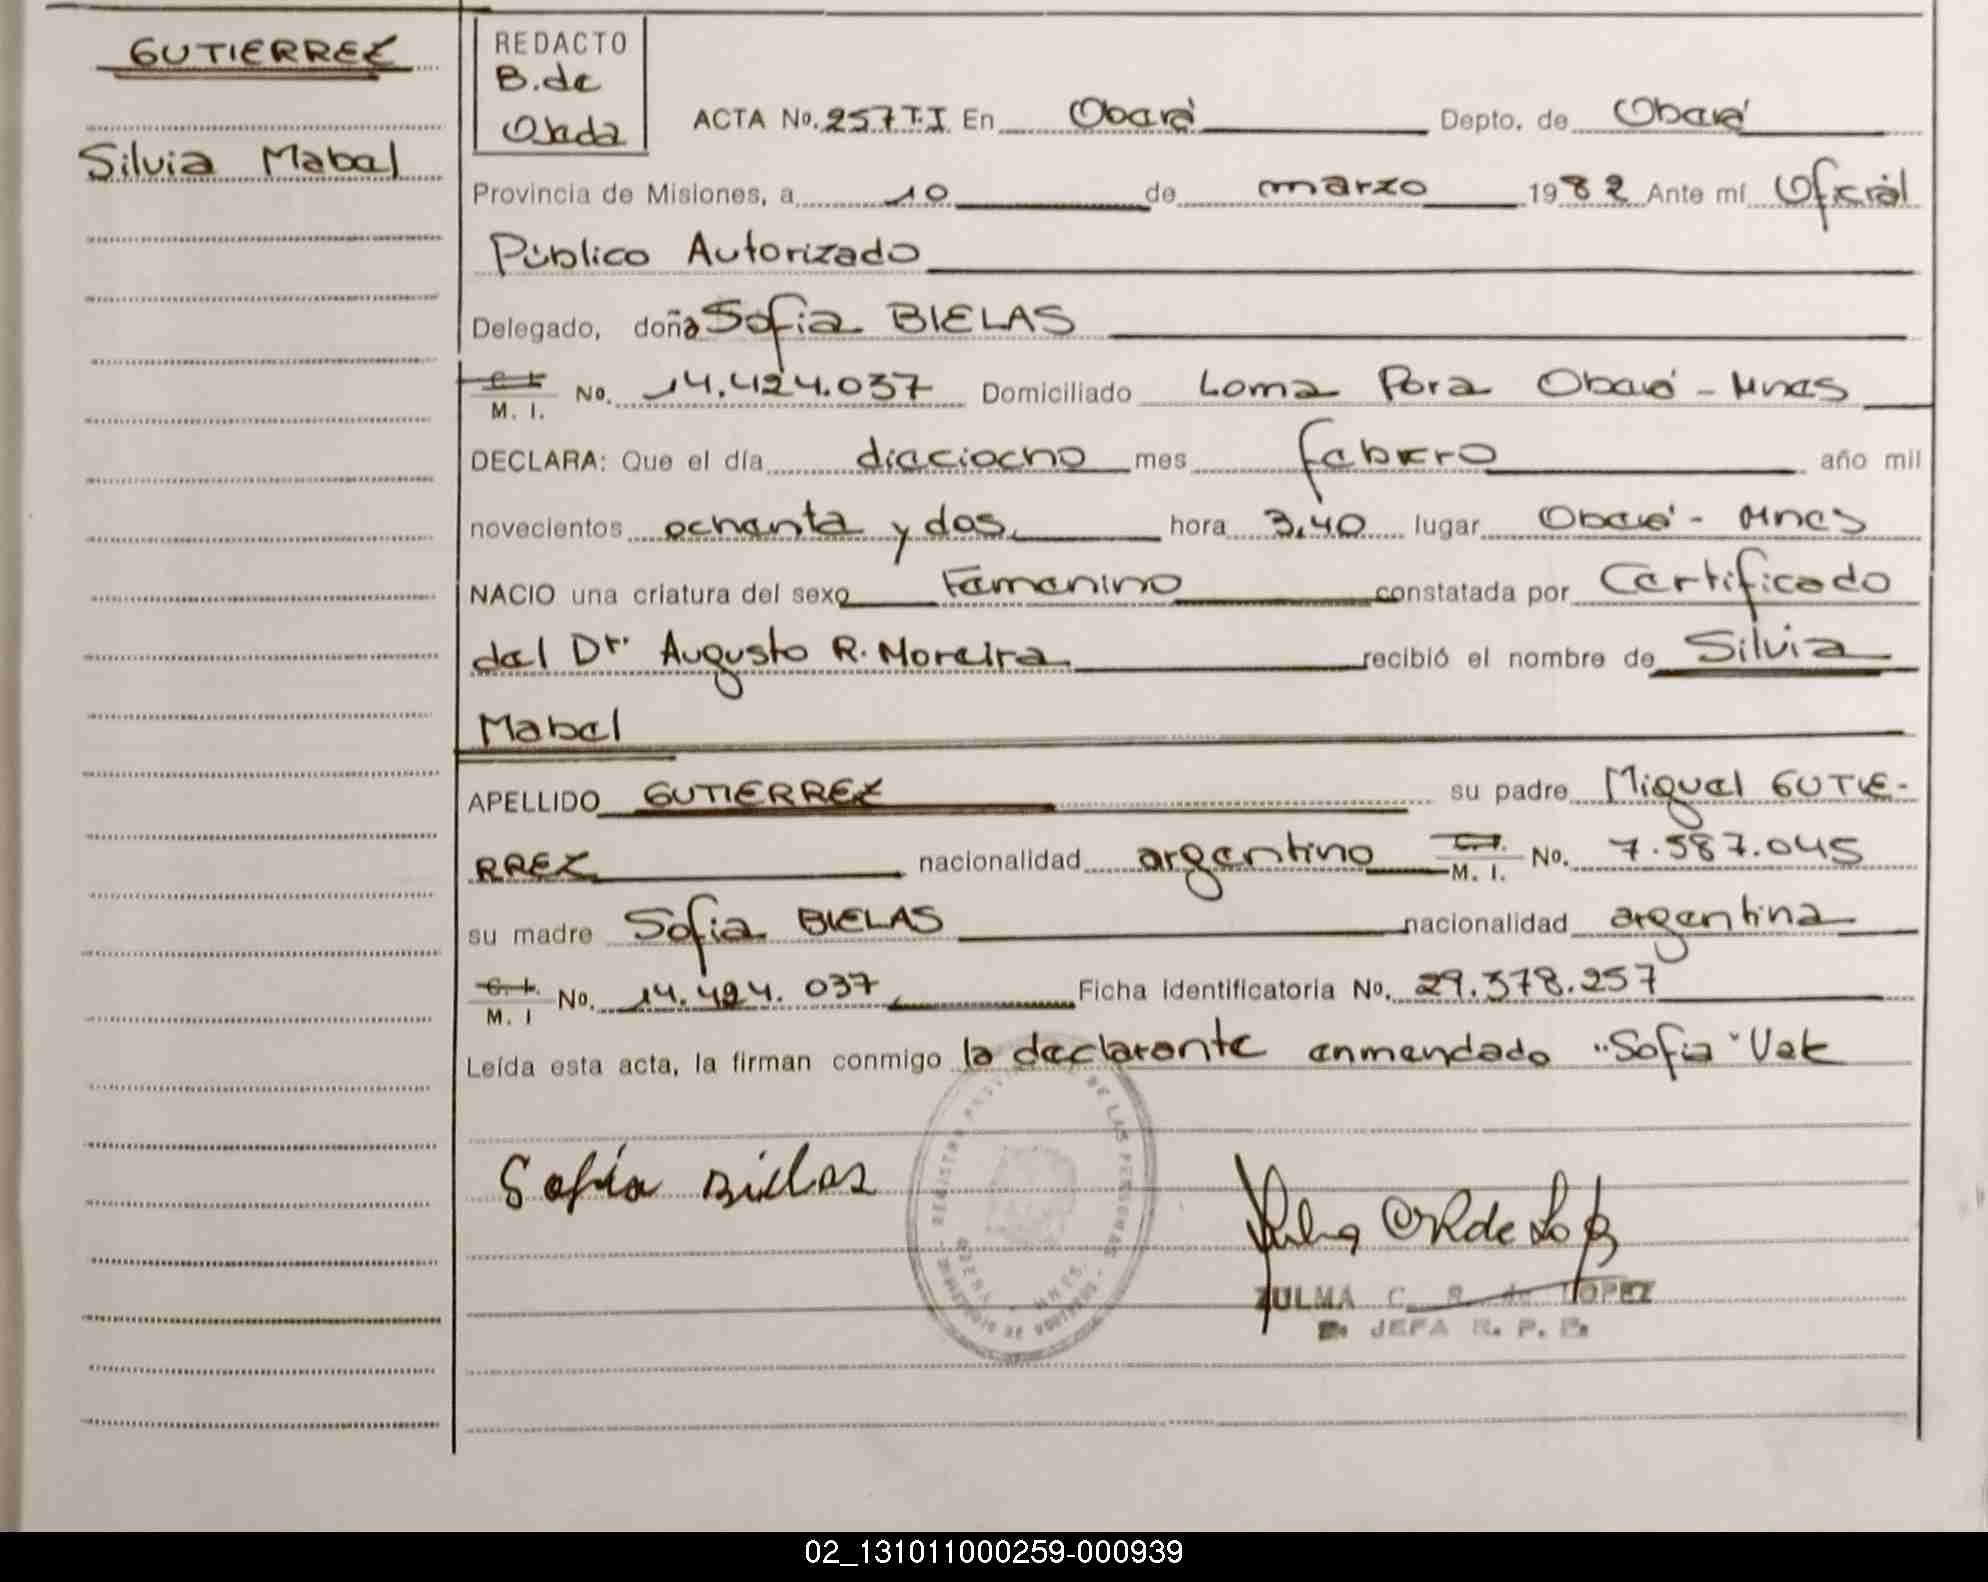 GUTIERREZ
Silvia Mabel
REDACTO
B. de
Ojeda
ACTA No. 257 T. I En Oberá Depto. de Oberá
Provincia de Misiones, a 10 de marzo 1982 Ante mí Oficial
Público Autorizado
Delegado, doña Sofia BIELAS
C. I. M. I. No. 14.424.037 Domiciliado Loma Pora Oberá - Mnes
DECLARA: Que el día dieciocho mes febrero año mil
novecientos ochenta y dos, hora 3,40 lugar Oberá - Mnes
NACIO una criatura del sexo Femenino constatada por Certificado
del Dr. Augusto R. Moreira recibió el nombre de Silvia
Mabel
APELLIDO GUTIERREZ su padre Miguel GUTIE-
RREZ nacionalidad argentino C. I. M. I. No. 7.587.045
su madre Sofia BIELAS nacionalidad argentina
C. I. M. I No. 14.424.037, Ficha Identificatoria No. 29.378.257
Leída esta acta, la firman conmigo la declarante enmendado "Sofia" Vale
Sofía Bielas
ZULMA C. R. de LOPEZ
JEFA R. P. P.
REGISTRO PROVINCIAL DE LAS PERSONAS
OBERA - MNES.
02_131011000259-000939